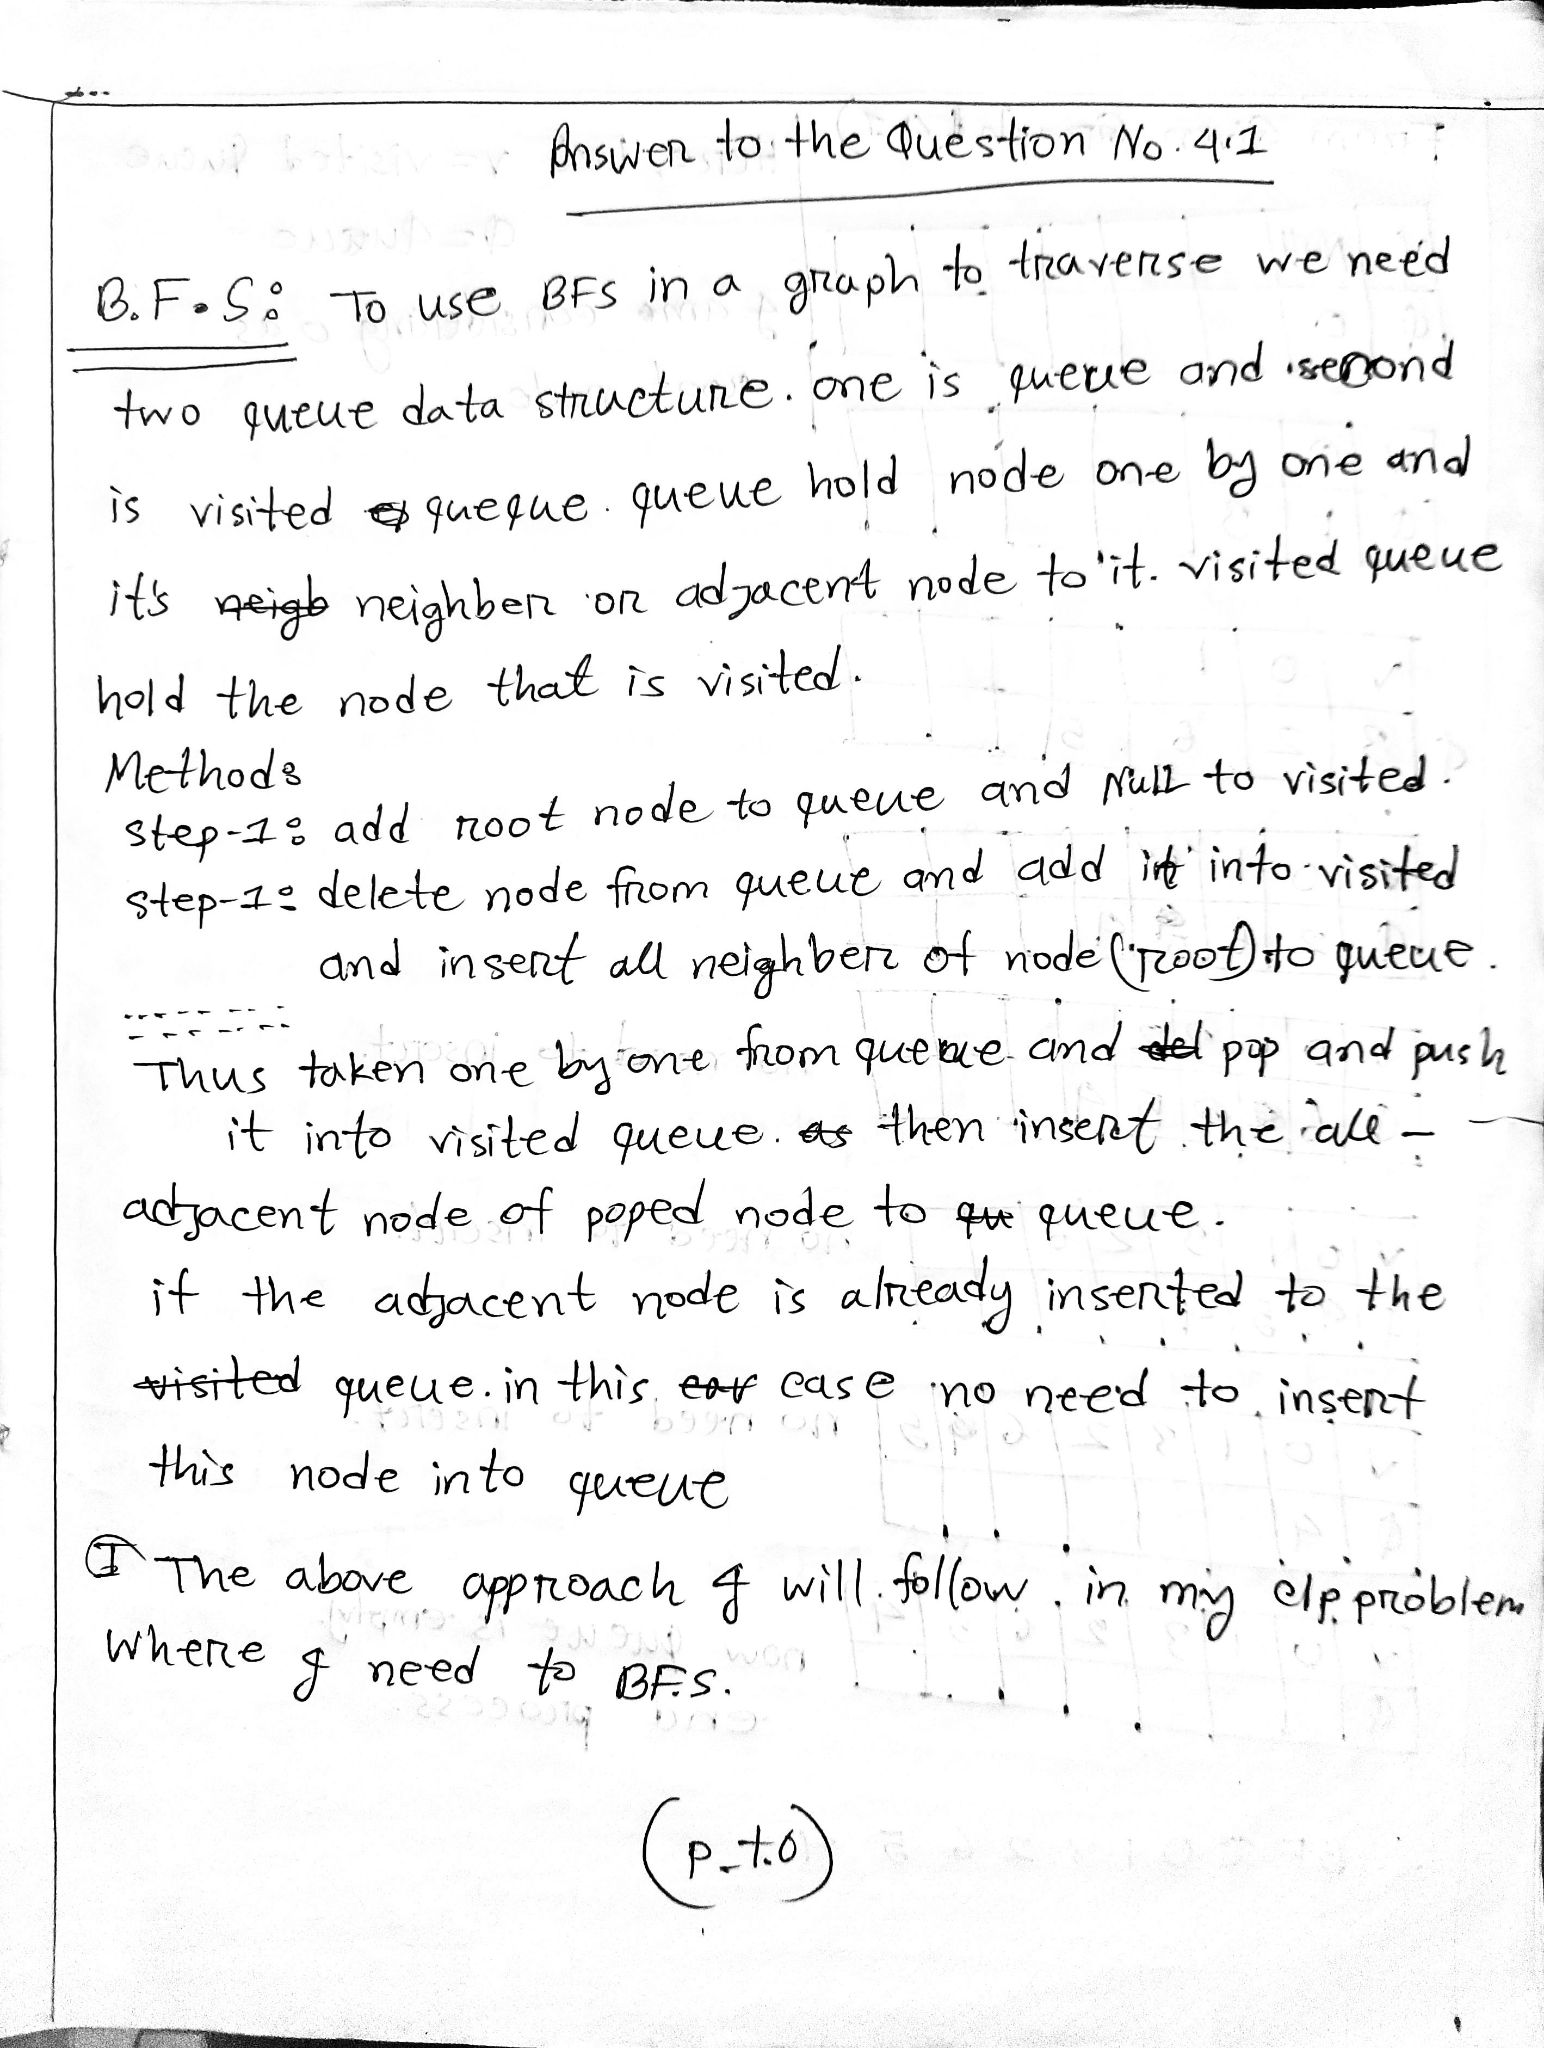 Answer to the Question No. 4.1
B.F.S: To use BFS in a graph to traverse we need
two queue data structure. one is queue and second
is visited queque. queue hold node one by one and
it's neigb neighber or adjacent node to it. visited queue
hold the node that is visited.
Method:
step-1: add root node to queue and Null to visited.
step-1: delete node from queue and add it into visited
and insert all neighber of node (root) to queue.
Thus taken one by one from queue and del pop and push
it into visited queue. as then insert the all -
adjacent node of poped node to qu queue.
if the adjacent node is already inserted to the
visited queue. in this case no need to insert
this node into queue
I The above approach I will follow in my clp problem
where I need to BF.S.
(P.t.o)